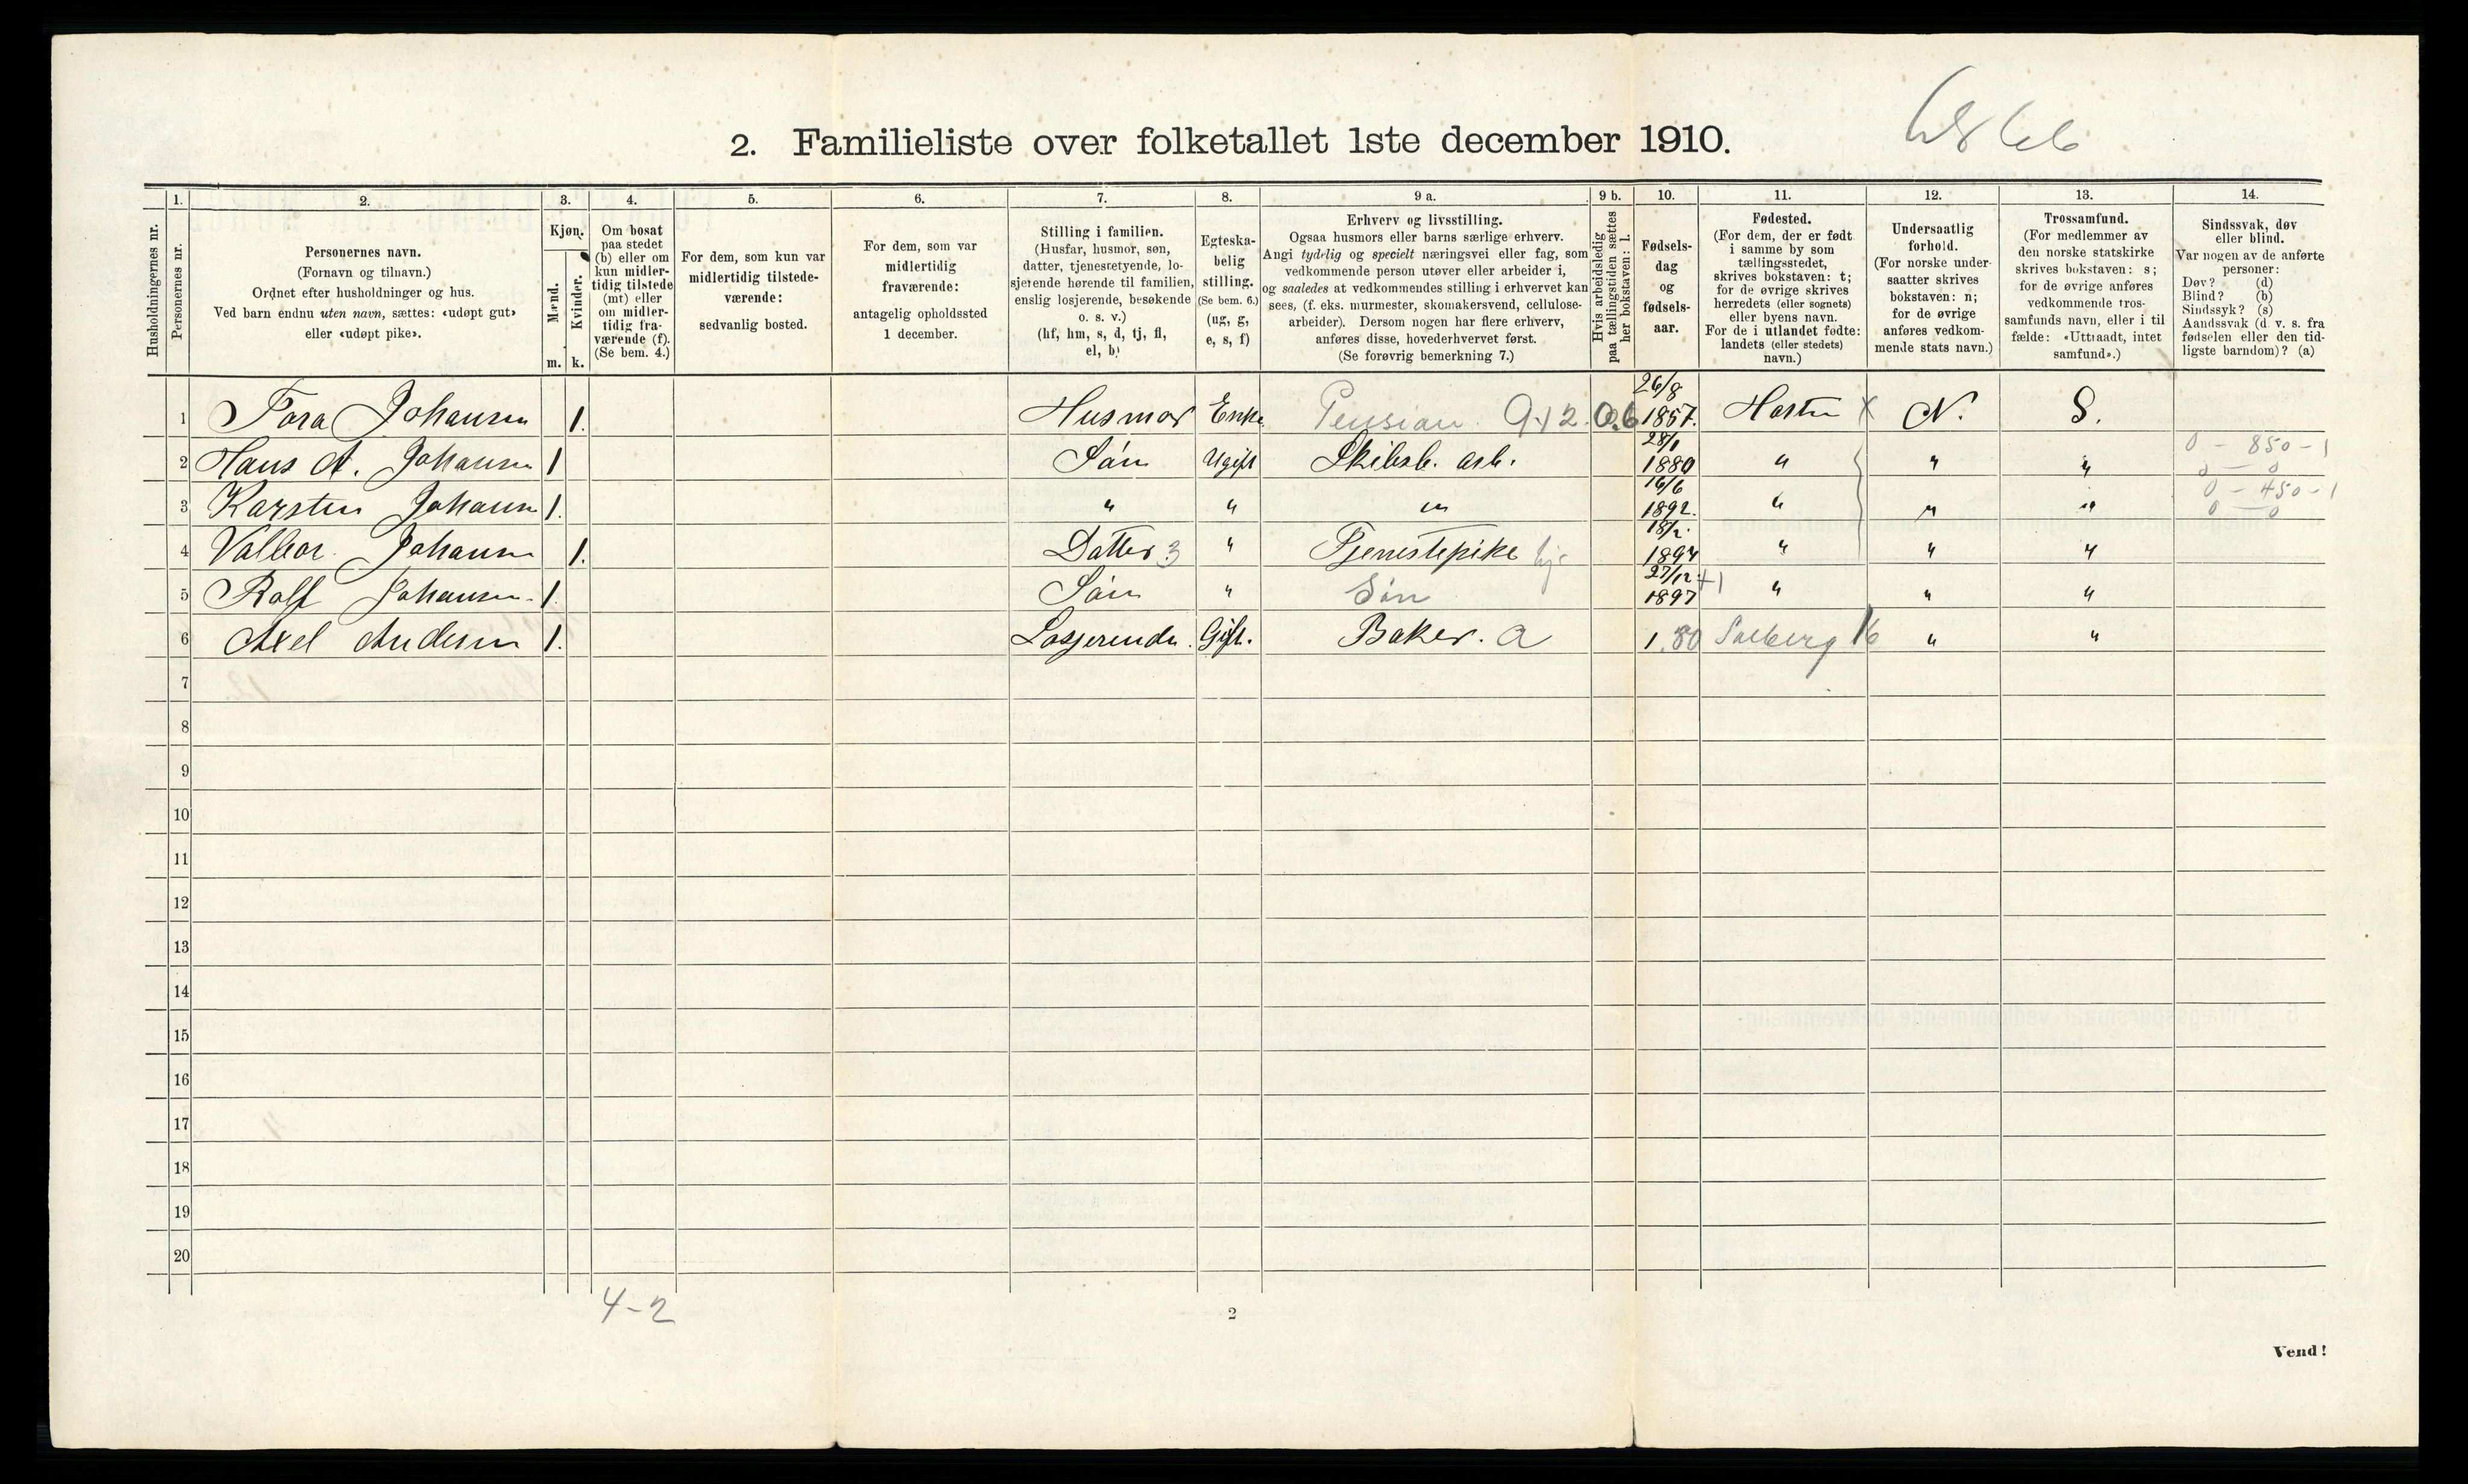 2. Familieliste over folketallet 1ste december 1910.
Husholdningernes nr.
1.
Personernes nr.
2.
Personernes navn.
(Fornavn og tilnavn.)
Ordnet efter husholdninger og hus.
Ved barn endnu uten navn, sættes: «udøpt gut»
eller «udøpt pike».
3.
Kjøn.
Mænd.
Kvinder.
m.
k.
4.
Om bosat
paa stedet
(b) eller om
kun midler-
tidig tilstede
(mt) eller
om midler-
tidig fra-
værende (f).
(Se bem. 4.)
5.
For dem, som kun var
midlertidig tilstede-
værende:
sedvanlig bosted.
6.
For dem, som var
midlertidig
fraværende:
antagelig opholdssted
1 december.
7.
Stilling i familien.
(Husfar, husmor, søn,
datter, tjenestetyende, lo-
sjerende hørende til familien,
enslig losjerende, besøkende
o. s. v.)
(hf, hm, s, d, tj, fl,
el, b)
8.
Egteska-
belig
stilling.
(Se bem. 6.)
(ug, g,
e, s, f)
9 a.
Erhverv og livsstilling.
Ogsaa husmors eller barns særlige erhverv.
Angi tydelig og specielt næringsvei eller fag, som
vedkommende person utøver eller arbeider i,
og saaledes at vedkommendes stilling i erhvervet kan
sees, (f. eks. murmester, skomakersvend, cellulose-
arbeider). Dersom nogen har flere erhverv,
anføres disse, hovederhvervet først.
(Se forøvrig bemerkning 7.)
9 b.
Hvis arbeidsledig
paa tællingstiden sættes
her bokstaven: l.
10.
Fødsels-
dag
og
fødsels-
aar.
11.
Fødested.
(For dem, der er født
i samme by som
tællingsstedet,
skrives bokstaven: t;
for de øvrige skrives
herredets (eller sognets)
eller byens navn.
For de i utlandet fødte:
landets (eller stedets)
navn.)
12.
Undersaatlig
forhold.
(For norske under-
saatter skrives
bokstaven: n;
for de øvrige
anføres vedkom-
mende stats navn.)
13.
Trossamfund.
(For medlemmer av
den norske statskirke
skrives bokstaven: s;
for de øvrige anføres
vedkommende tros-
samfunds navn, eller i til
fælde: «Uttraadt, intet
samfund».)
14.
Sindssvak, døv
eller blind.
Var nogen av de anførte
personer:
Døv? (d)
Blind? (b)
Sindssyk? (s)
Aandssvak (d. v. s. fra
fødselen eller den tid-
ligste barndom)? (a)
1 Tora Johansen 1. Husmor Enke Pension 9-12. 0.6 26/8 1857. Horten X N. S.
2 Hans A. Johansen 1 Søn Ugift Skibsb. arb. 28/1 1880 " " " 0 - 850 - 1
0 - 0
3 Karsten Johansen 1. " " " 16/6 1892. " " " 0 - 450 - 1
0 - 0
4 Valbor Johansen 1. Datter 3 " Tjenestepike hj 18/2. 1894 " " "
5 Rolf Johansen. 1. Søn " Søn 27/12 1897 +1 " " "
6 Axel Andersen 1. Losjerende. Gift. Baker. a 1.80 Solberg 16 " "
7
8
9
10
11
12
13
14
15
16
17
18
19
20
4-2
2
Vend!